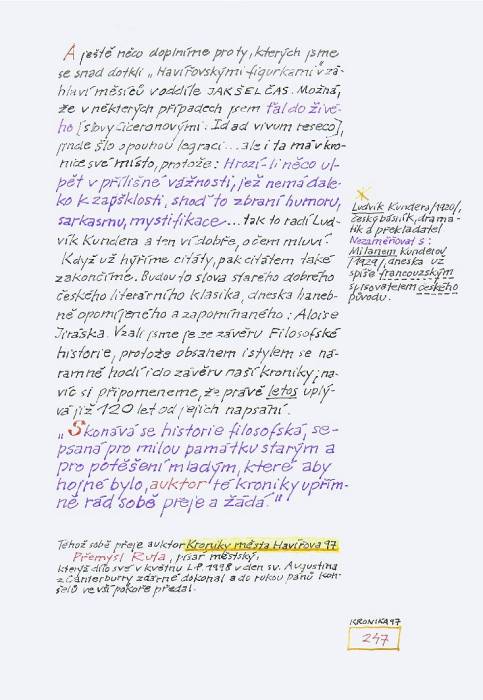 A ještě něco doplníme pro ty, kterých jsme
se snad dotkli „Havířovskými figurkami" v zá-
hlaví měsíců v oddíle JAK ŠEL ČAS. Možná,
že v některých případech jsem ťal do živé-
ho [slovy Ciceronovými: Id ad vivum reseco],
jinde šlo o pouhou legraci...ale i ta má v kro-
nice své místo, protože: Hrozí-li něco ul-
pět v přílišné vážnosti, jež nemá dale-
ko k zapšklosti, shoď to zbraní humoru,
sarkasmu, mystifikace... tak to radí Lud-
vík Kundera a ten ví dobře, o čem mluví.
Když už hýříme citáty, pak citátem také
zakončíme. Budou to slova starého dobrého
českého literárního klasika, dneska haneb-
ně opomíjeného a zapomínaného: Aloise
Jiráska. Vzali jsme je ze závěru Filosofské
historie, protože obsahem i stylem se ná-
ramně hodí i do závěru naší kroniky; na-
víc si připomeneme, že právě letos uplý-
vá již 120 let od jejich napsání.
„Skonává se historie filosofská, se-
psaná pro milou památku starým a
pro potěšení mladým, které aby
hojné bylo, auktor té kroniky upřím-
ně rád sobě přeje a žádá."
Ludvík Kundera /1920/,
český básník, drama-
tik a překladatel
Nezaměňovat s:
Milanem Kunderou
/1929/, dneska už
spíše francouzským
spisovatelem českého
původu.
Téhož sobě přeje auktor Kroniky města Havířova 97
Přemysl Ruta, písař městský,
který dílo své v květnu L.P. 1998 v den sv. Augustina
z Canterburry zdárně dokonal a do rukou pánů kon-
šelů ve vší pokoře předal.
KRONIKA 97
247